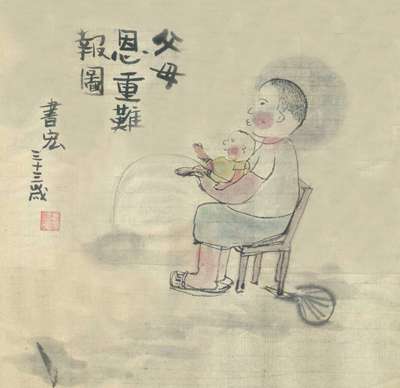 父母
恩重難
報圖
書宏
三十三歲